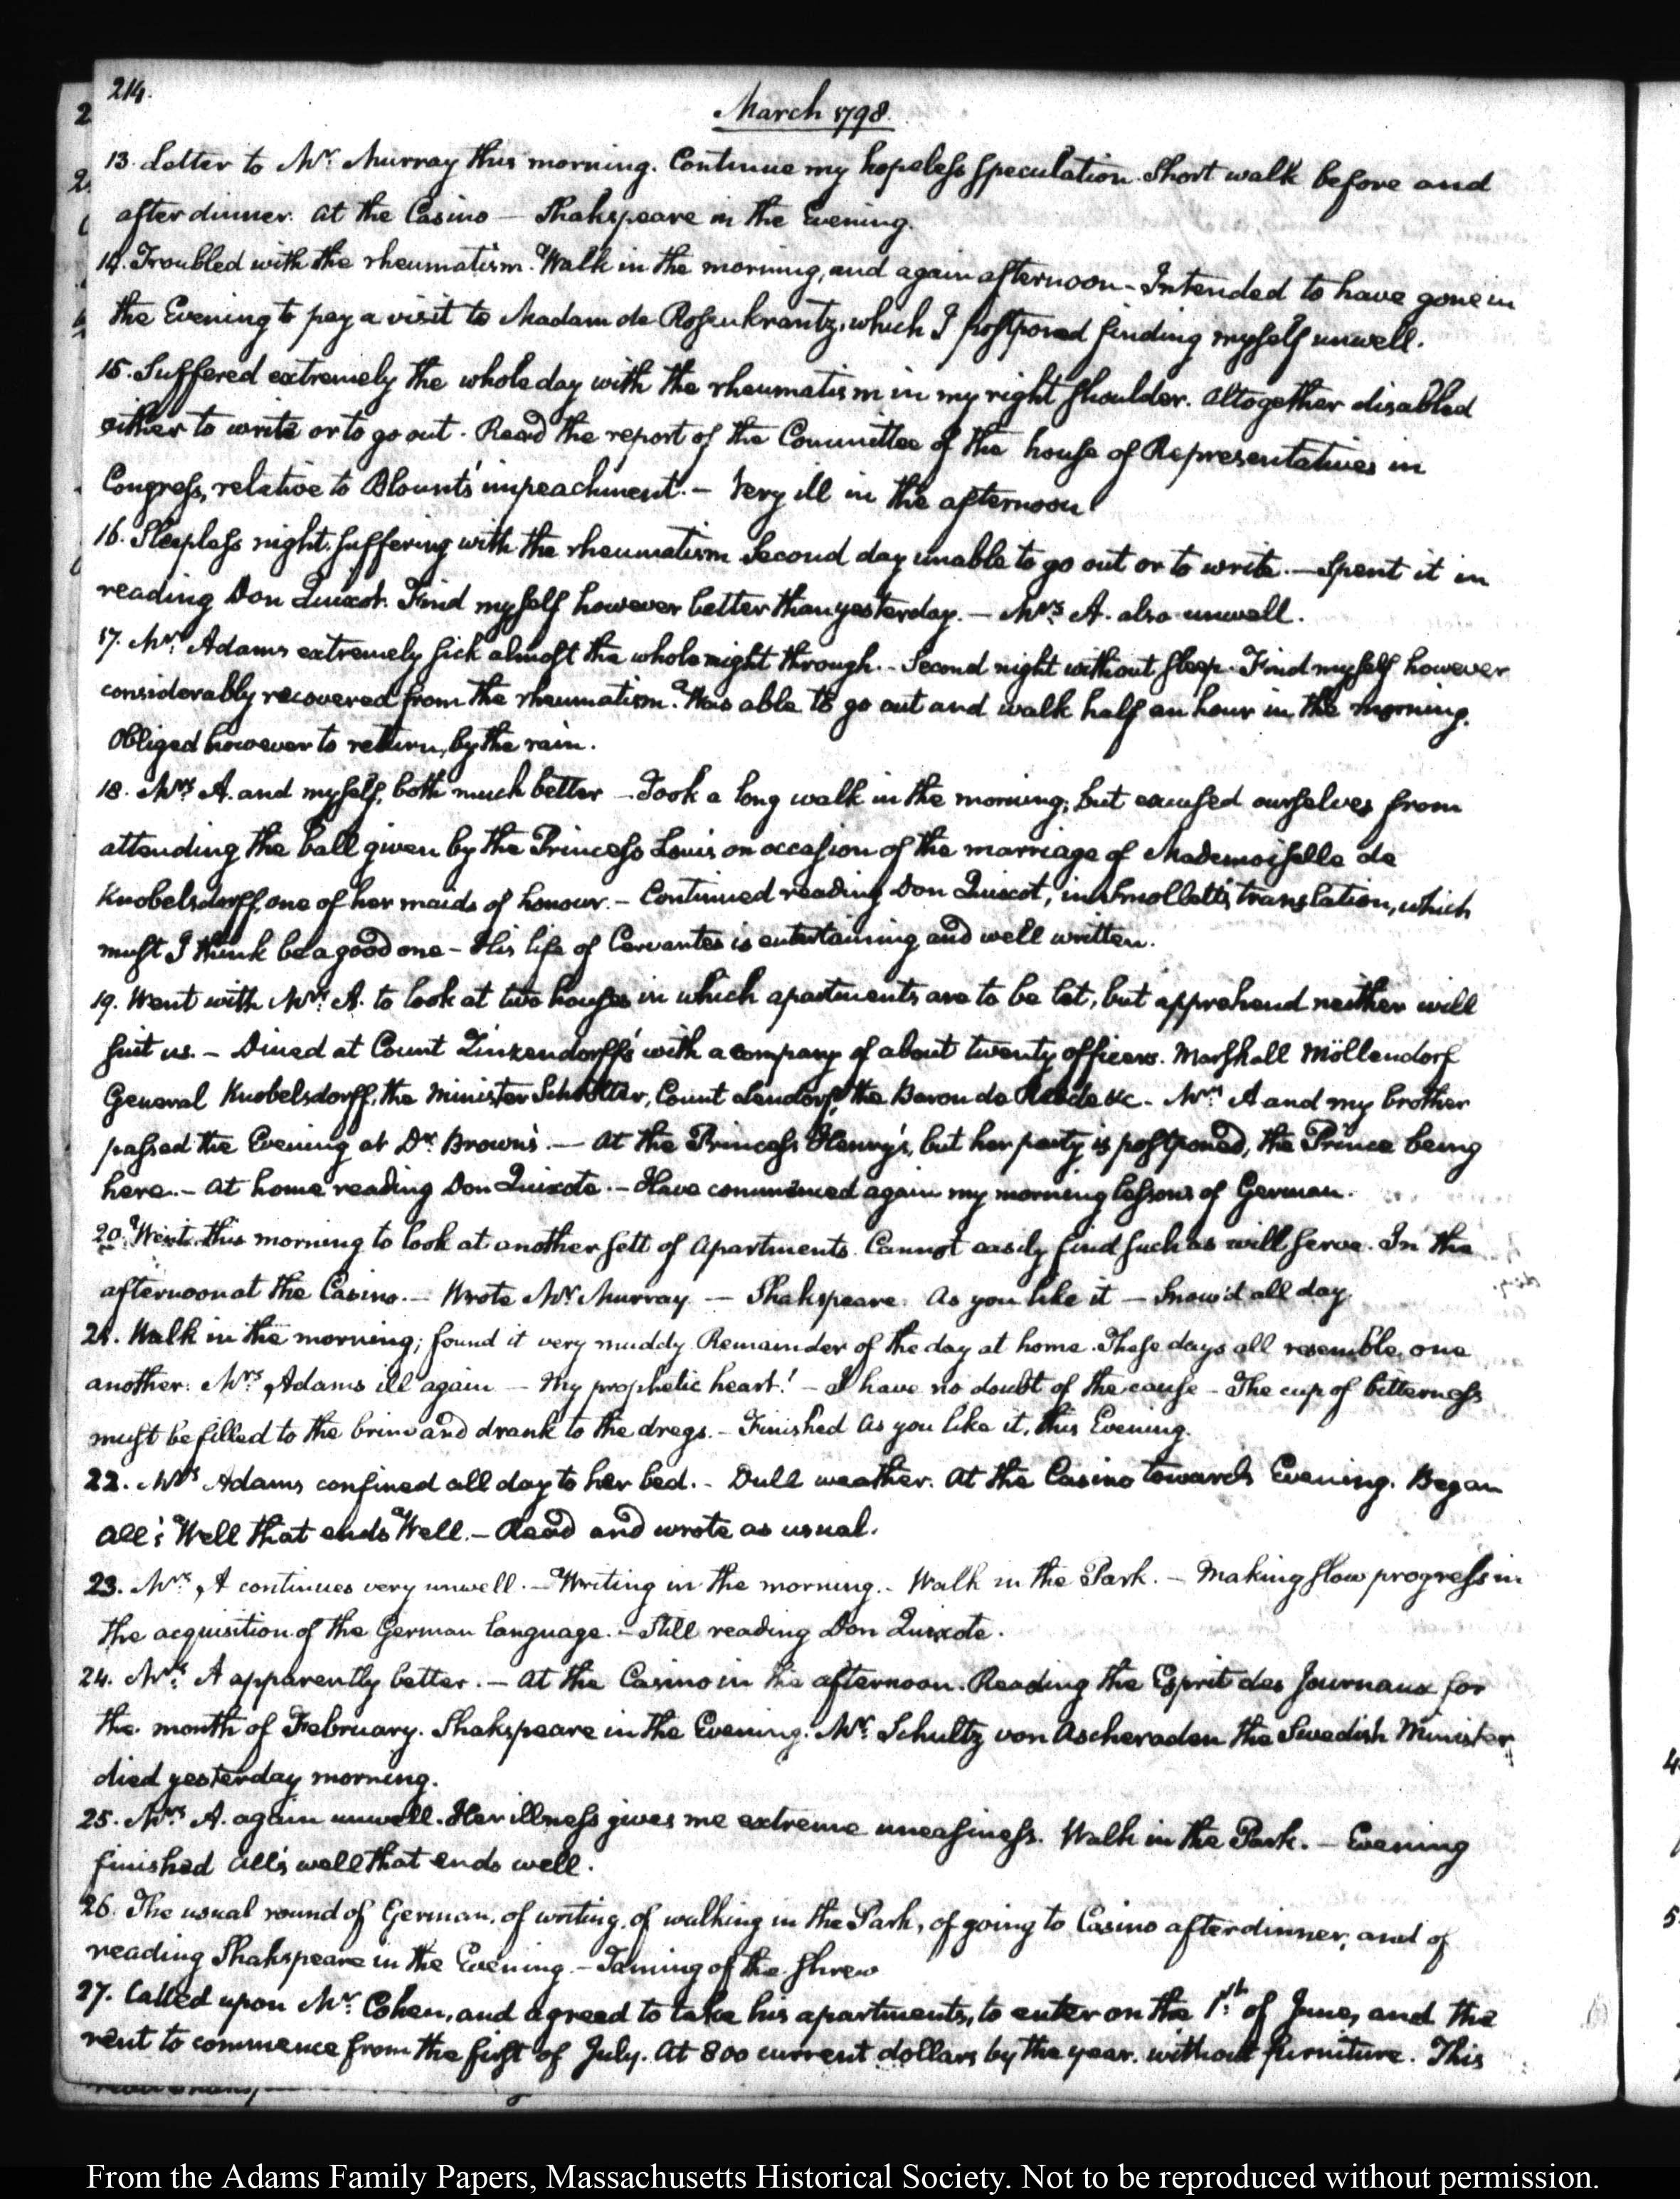 214.
March 1798.
13. Letter to Mr. Murray this morning. Continue my hopeless speculation. Short walk before and
after dinner. At the Casino — Shakspeare in the Evening.
14. Troubled with the rheumatism. Walk in the morning, and again afternoon — Intended to have gone in
the Evening to pay a visit to Madam de Rosenkrantz, which I postponed finding myself unwell.
15. Suffered extremely the whole day with the rheumatism in my right shoulder. Altogether disabled
either to write or to go out. Read the report of the Committee of the house of Representatives in
Congress, relative to Blount's impeachment. — Very ill in the afternoon
16. Sleepless night, suffering with the rheumatism Second day unable to go out or to write. — Spent it in
reading Don Quixot. Find myself however better than yesterday. — Mrs. A. also unwell.
17. Mrs. Adams extremely sick almost the whole night through. - Second night without sleep. Find myself however
considerably recovered from the rheumatism. Was able to go out and walk half an hour in the morning.
Obliged however to return, by the rain.
18. Mrs. A. and myself, both much better — Took a long walk in the morning; but excused ourselves from
attending the ball given by the Princess Louis on occasion of the marriage of Mademoiselle de
Knobelsdorff, one of her maids of honour. — Continued reading Don Quixot, in Smollett's translation, which
must I think be a good one — His life of Cervantes is entertaining and well written.
19. Went with Mrs. A. to look at two houses in which apartments are to be let, but apprehend neither will
suit us. — Dined at Count Zinzendorff's with a company of about twenty officers. Marshall Möllendorf
General Knobelsdorff, the Minister Schrötter, Count Lendorf, the Baron de Reede &c. — Mrs. A and my brother
passed the Evening at Dr. Brown's. — At the Princess Henry's, but her party is postponed, the Prince being
here. — At home reading Don Quixote. — Have commenced again my morning lessons of German.
20. Went this morning to look at another sett of Apartments. Cannot easily find such as will serve. In the
afternoon at the Casino. — Wrote Mr. Murray — Shakspeare. As you like it — Snow'd all day.
21. Walk in the morning; found it very muddy. Remainder of the day at home. These days all resemble one
another. Mrs. Adams ill again — My prophetic heart! — I have no doubt of the cause — The cup of bitterness
must be filled to the brim and drank to the dregs. — Finished As you like it, this Evening.
22. Mrs. Adams confined all day to her bed. - Dull weather. At the Casino towards Evening. Began
All's Well that ends Well. — Read and wrote as usual.
23. Mrs. A continues very unwell. — Writing in the morning. - Walk in the Park. — Making slow progress in
the acquisition of the German language. — Still reading Don Quixote.
24. Mrs. A apparently better. — At the Casino in the afternoon. Reading the Esprit des Journaux for
the month of February. Shakspeare in the Evening. Mr. Schultz von Ascheraden the Swedish Minister
died yesterday morning.
25. Mrs. A. again unwell. Her illness gives me extreme uneasiness. Walk in the Park. — Evening
finished All's well that ends well.
26. The usual round of German, of writing, of walking in the Park, of going to Casino after dinner, and of
reading Shakspeare in the Evening. — Taming of the Shrew
27. Called upon Mr. Cohen, and agreed to take his apartments, to enter on the 1st. of June, and the
rent to commence from the first of July. At 800 current dollars by the year. without furniture. This
From the Adams Family Papers, Massachusetts Historical Society. Not to be reproduced without permission.